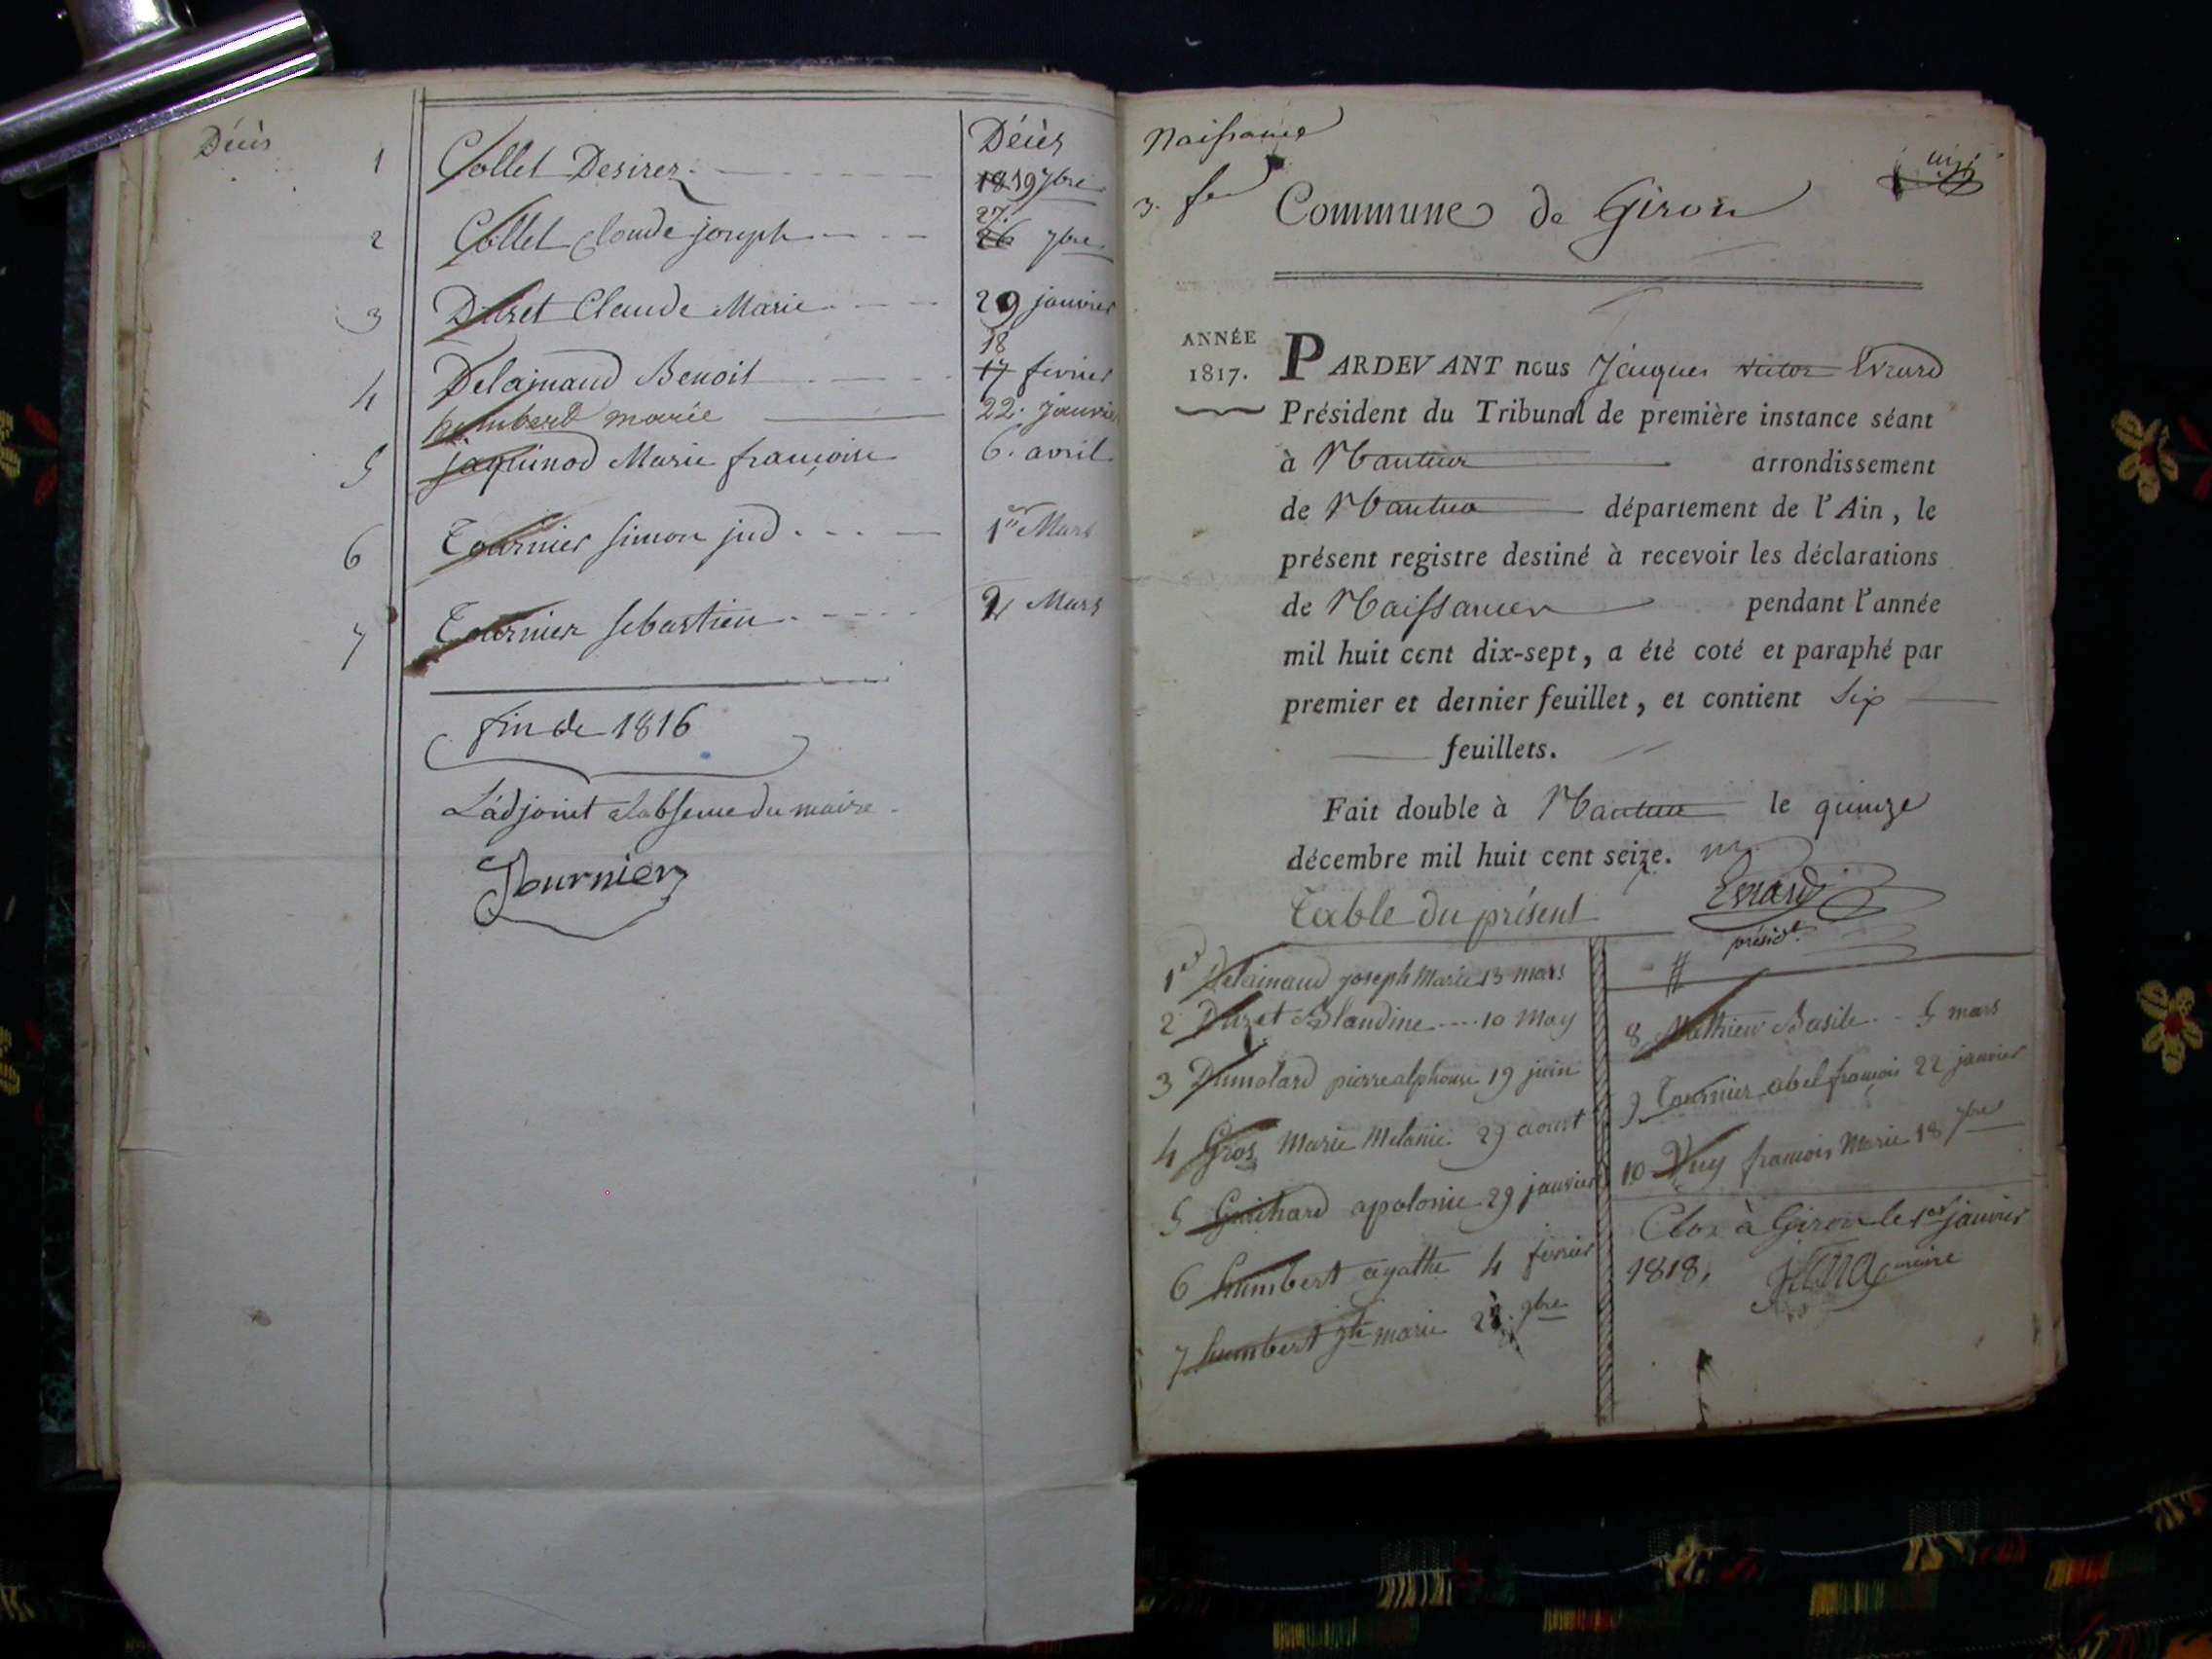 Décès
Décès
1 Collet Desirez 18 19 7bre
27.
2 Collet Claude joseph 26 7bre
3 Duret Claude Marie 29 janvier
18
4 Delajnaud Benoit 17 fevrier
humbert marie 22. janvier
5 jaquinod Marie françoise 6. avril
6 Tournier simon jud 1er Mars
7 Tournier sebastien Mars
fin de 1816
L'adjoint a l'absence du maire
Tournier
Naissance
3. fe
Commune de Giron
ANNÉE
1817.
PARDEVANT nous Jacques Victor Evrard
Président du Tribunal de première instance séant
à Nantua arrondissement
de Nantua département de l'Ain, le
présent registre destiné à recevoir les déclarations
de Naissances pendant l'année
mil huit cent dix-sept, a été coté et paraphé par
premier et dernier feuillet, et contient six
feuillets.
Fait double à Nantua le quinze
décembre mil huit cent seize.
Evrard
présidt.
Table du présent
1er Delainaud joseph Marie 13 mars
2 Duret Blandine 10 May
3 Dumolard pierre alphonse 19 juin
4 Gros Marie Melanie 29 aoust
5 Guichard apolonie 29 janvier
6 humbert agathe 4 fevrier
7 humbert jh marie 9bre
8 Mathieu Basile 5 mars
9 Tournier abel françois 22 janvier
10 Vuy françois Marie 18 7bre
Clos à Giron le 1er janvier
1818,
maire